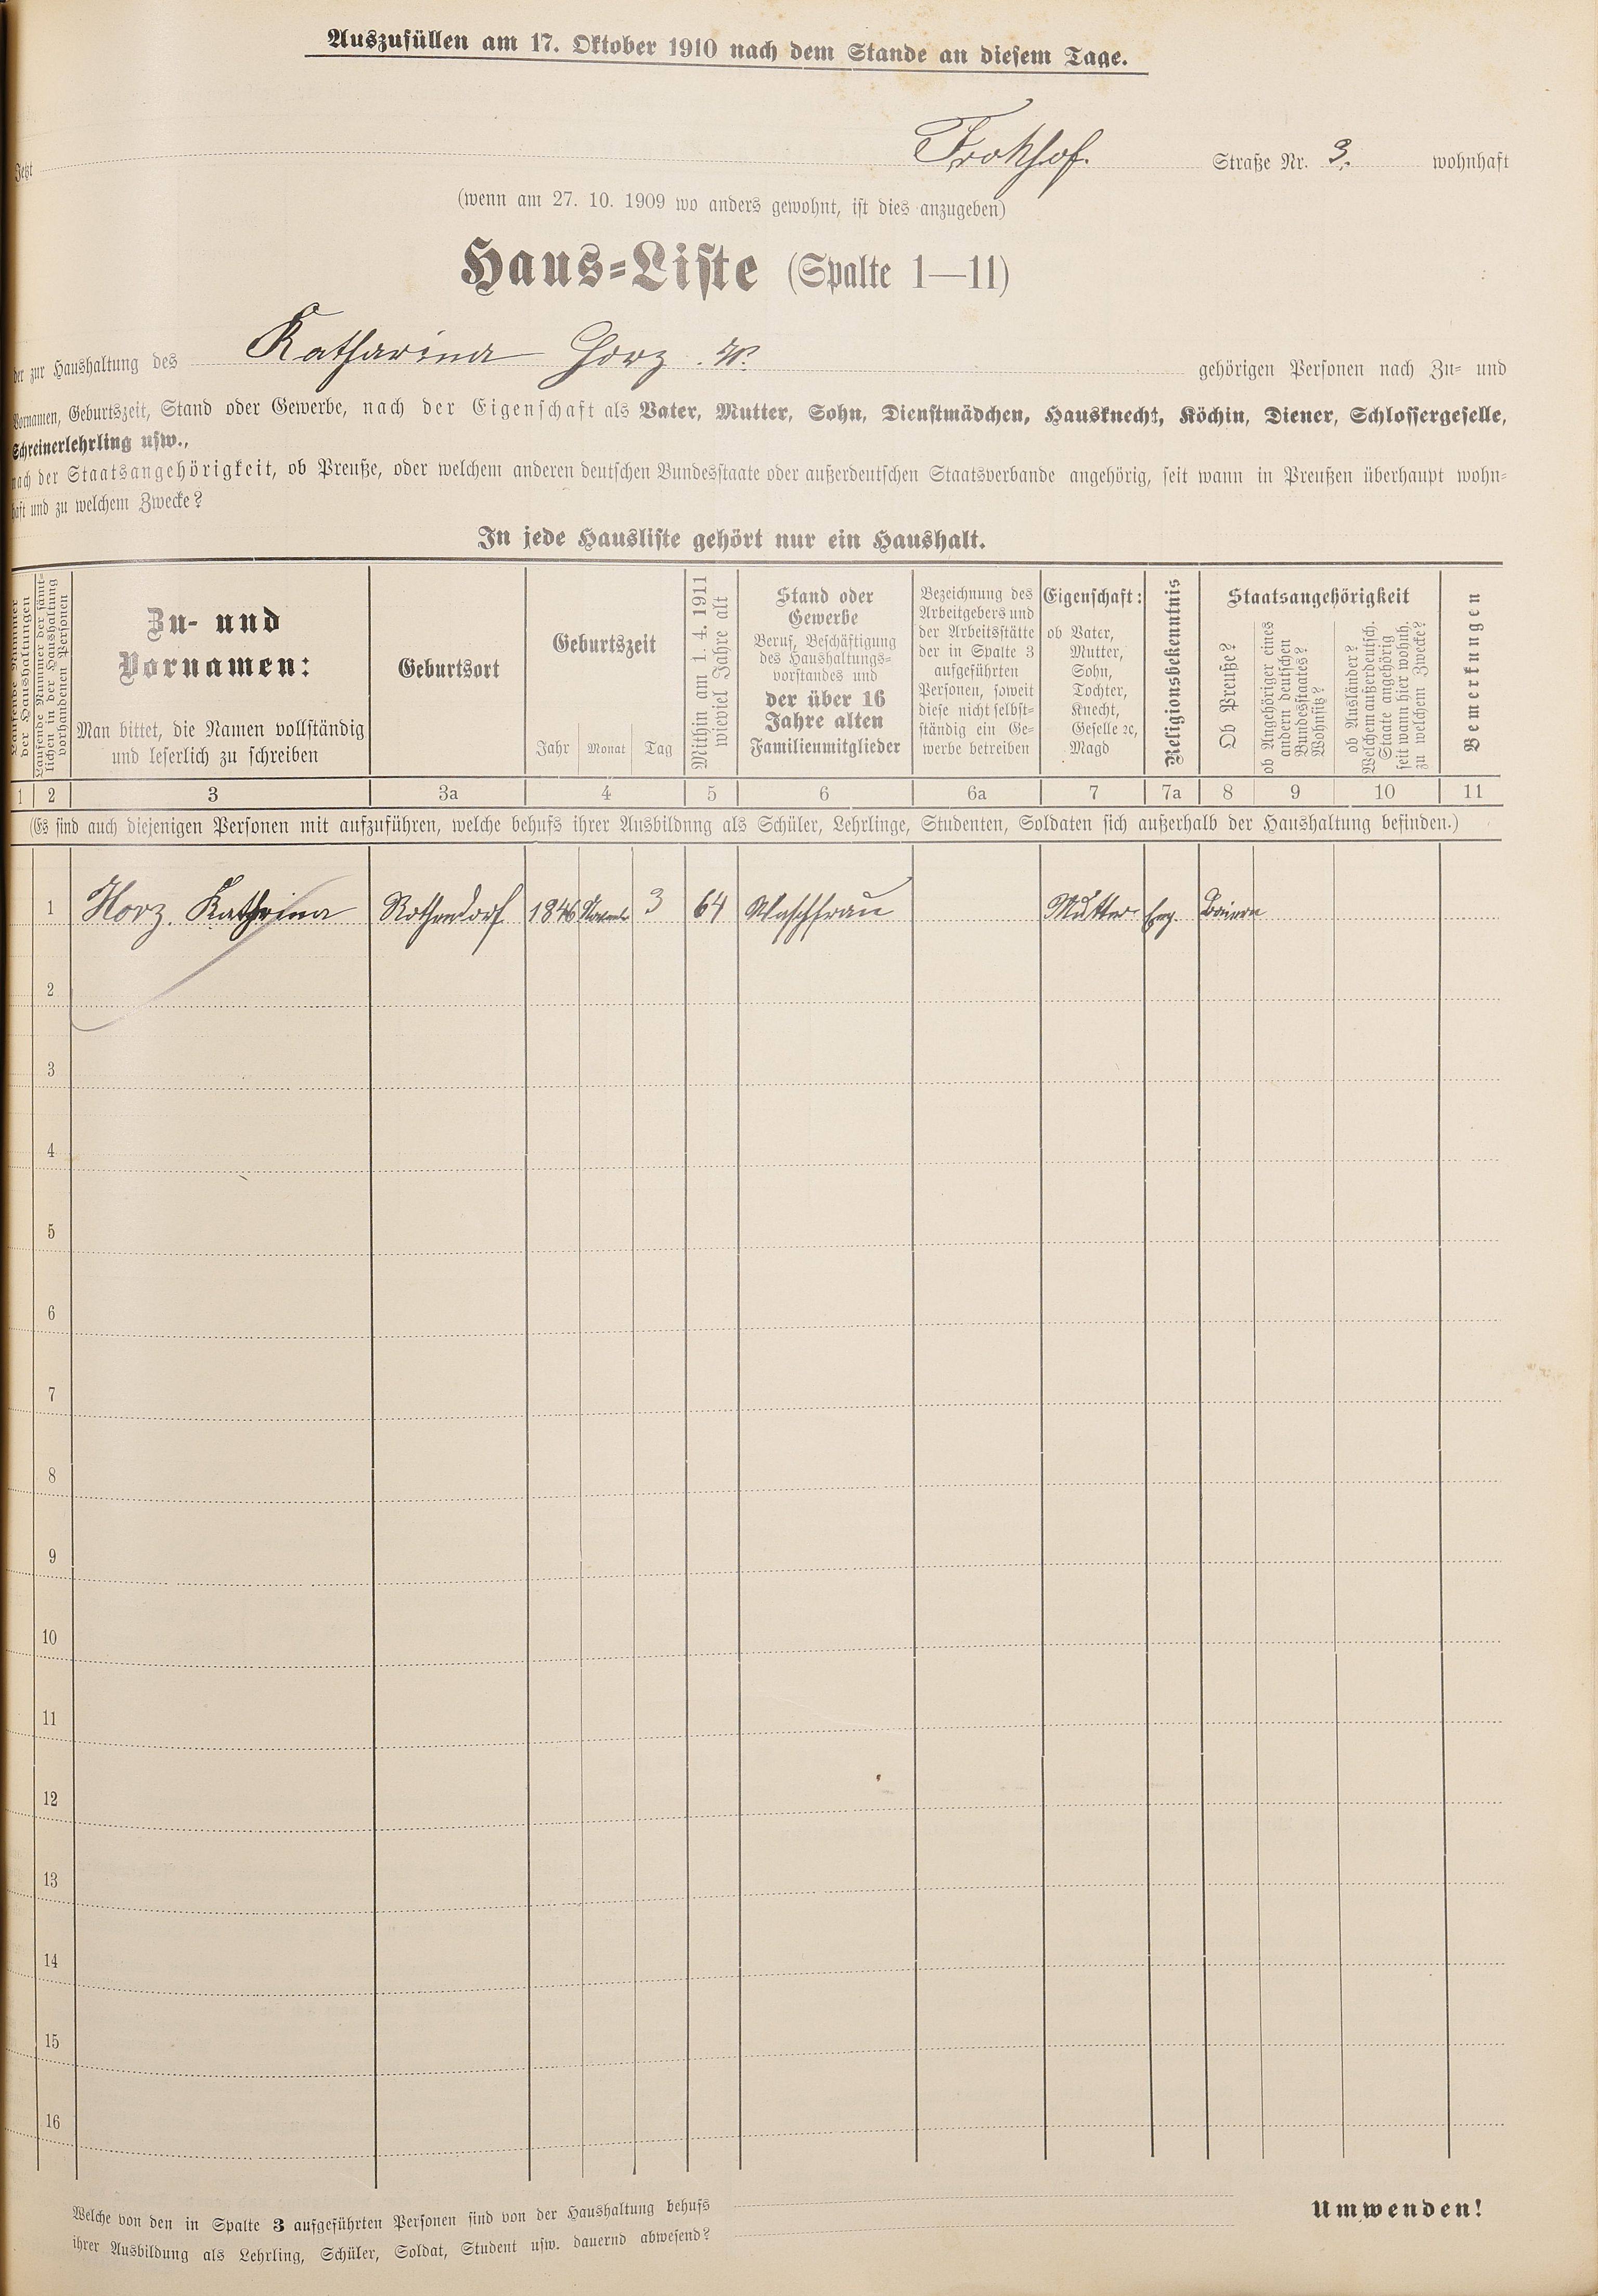 Auszufüllen am 17. Oktober 1910 nach dem Stande an diesem Tage.
Jetzt Frokhof. Straße Nr. 3. wohnhaft
(wenn am 27. 10. 1909 wo anders gewohnt, ist dies anzugeben)
Haus-Liste (Spalte 1—11)
der zur Haushaltung des Katharina Horz. W. gehörigen Personen nach Zu- und
Vornamen, Geburtszeit, Stand oder Gewerbe, nach der Eigenschaft als Vater, Mutter, Sohn, Dienstmädchen, Hausknecht, Köchin, Diener, Schlossergeselle,
Schreinerlehrling usw.,
nach der Staatsangehörigkeit, ob Preuße, oder welchem anderen deutschen Bundesstaate oder außerdeutschen Staatsverbande angehörig, seit wann in Preußen überhaupt wohn-
haft und zu welchem Zwecke?
In jede Hausliste gehört nur ein Haushalt.
Laufende Nummer
der Haushaltungen
Laufende Nummer der sämt-
lichen in der Haushaltung
vorhandenen Personen
Zu- und
Vornamen:
Man bittet, die Namen vollständig
und leserlich zu schreiben
Geburtsort
Geburtszeit
Jahr Monat Tag
Mithin am 1. 4. 1911
wieviel Jahre alt
Stand oder
Gewerbe
Beruf, Beschäftigung
des Haushaltungs-
vorstandes und
der über 16
Jahre alten
Familienmitglieder
Bezeichnung des
Arbeitgebers und
der Arbeitsstätte
der in Spalte 3
aufgeführten
Personen, soweit
diese nicht selbst-
ständig ein Ge-
werbe betreiben
Eigenschaft:
ob Vater,
Mutter,
Sohn,
Tochter,
Knecht,
Geselle ꝛc,
Magd
Religionsbekenntnis
Staatsangehörigkeit
Ob Preuße?
ob Angehöriger eines
andern deutschen
Bundesstaates?
Wohnsitz?
ob Ausländer?
Welchem außerdeutsch.
Staate angehörig
seit wann hier wohnh.
zu welchem Zwecke?
Bemerkungen
1 2 3 3a 4 5 6 6a 7 7a 8 9 10 11
(Es sind auch diejenigen Personen mit aufzuführen, welche behufs ihrer Ausbildnng als Schüler, Lehrlinge, Studenten, Soldaten sich außerhalb der Haushaltung befinden.)
1 Horz. Kathrina Rothendorf 1846 3 64 Waschfrau Mutter Evg. Baiern
2
3
4
5
6
7
8
9
10
11
12
13
14
15
16
Welche von den in Spalte 3 aufgeführten Personen sind von der Haushaltung behufs
ihrer Ausbildung als Lehrling, Schüler, Soldat, Student usw. dauernd abwesend?
Umwenden!